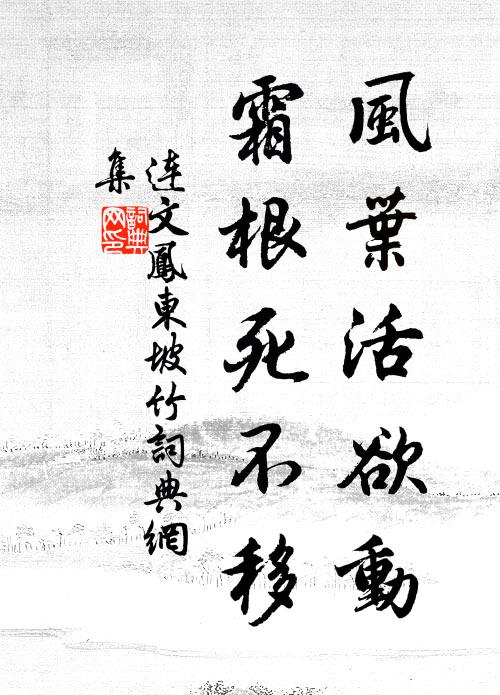 風葉活欲動
霜根死不移
連文鳳東坡竹詞典網
集
詞典網印